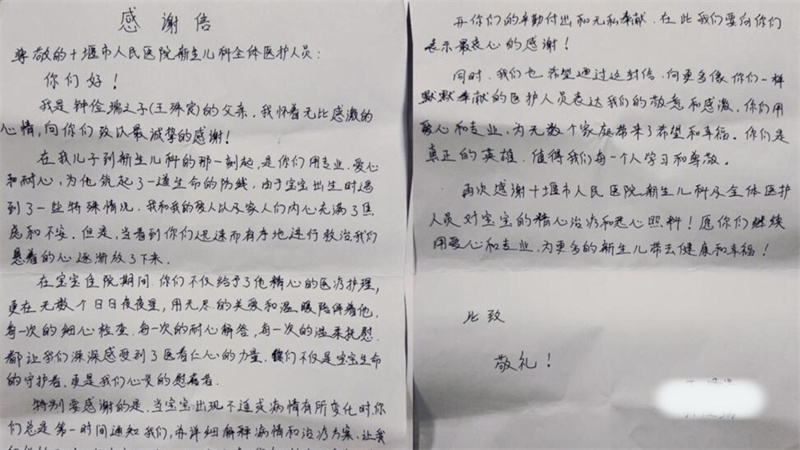 感谢信
尊敬的十堰市人民医院新生儿科全体医护人员:
你们好!
我是钟俭瑞之子(王瑞宾)的父亲,我怀着无比感激的
心情,向你们致以最诚挚的感谢!
在我儿子到新生儿科的那一刻起,是你们用专业、爱心
和耐心,为他筑起了一道生命的防线,由于宝宝出生时遇
到了一些特殊情况,我和我的爱人以及家人们内心充满了焦
虑和不安。但是,当看到你们迅速而有序地进行救治我们
悬着的心逐渐放了下来。
在宝宝住院期间,你们不仅给予了他精心的医疗护理,
更在无数个日日夜夜里,用无尽的关爱和温暖陪伴着他,
每一次的细心检查、每一次的耐心解答,每一次的温柔抚慰,
都让我们深深感受到了医者仁心的力量,你们不仅是宝宝生命
的守护者,更是我们心灵的慰藉者。
特别要感谢的是,当宝宝出现不适或病情有所变化时,你
们总是第一时间通知我们,并详细解释病情和治疗方案,让我
开你们的辛勤付出和无私奉献,在此我们要向你们
表示最衷心的感谢!
同时,我们也希望通过这封信,向更多像你们一样
默默奉献的医护人员表达我们的敬意和感激,你们用
爱心和专业,为无数个家庭带来了希望和幸福。你们是
真正的英雄,值得我们每一个人学习和尊敬。
再次感谢十堰市人民医院新生儿科及全体医护
人员对宝宝的精心治疗和悉心照料!愿你们继续
用爱心和专业,为更多的新生儿带去健康和幸福!
此致
敬礼!